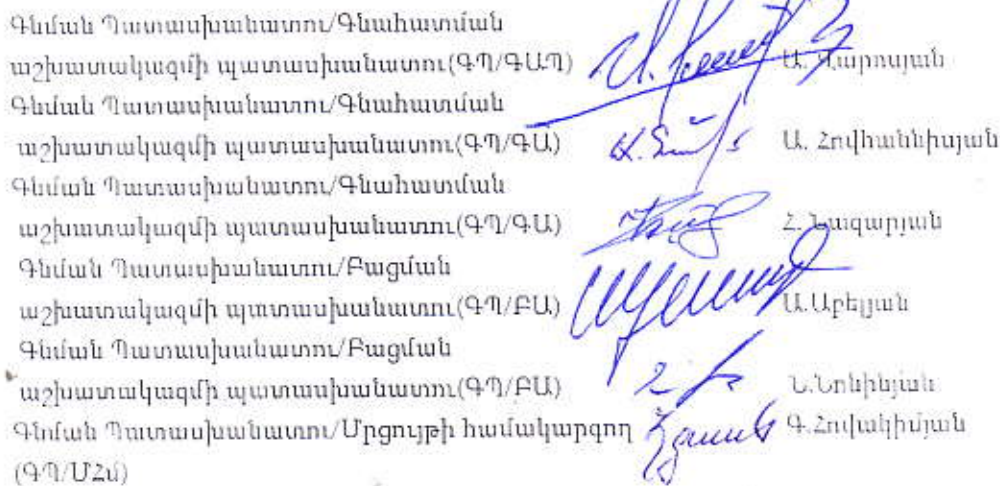 Գնման Պատասխանատու/Գնահատման
աշխատակազմի պատասխանատու(ԳՊ/ԳԱՊ) Ա. Մարոսյան
Գնման Պատասխանատու/Գնահատման
աշխատակազմի պատասխանատու(ԳՊ/ԳԱ) Ա. Հովհաննիսյան
Գնման Պատասխանատու/Գնահատման
աշխատակազմի պատասխանատու(ԳՊ/ԳԱ) Հ. Նազարյան
Գնման Պատասխանատու/Բացման
աշխատակազմի պատասխանատու(ԳՊ/ԲԱ) Ա.Աբելյան
Գնման Պատասխանատու/Բացման
աշխատակազմի պատասխանատու(ԳՊ/ԲԱ)
Գնման Պատասխանատու/Մրցույթի համակարգող Գ.Հովակիմյան
(ԳՊ/ՄՀմ)